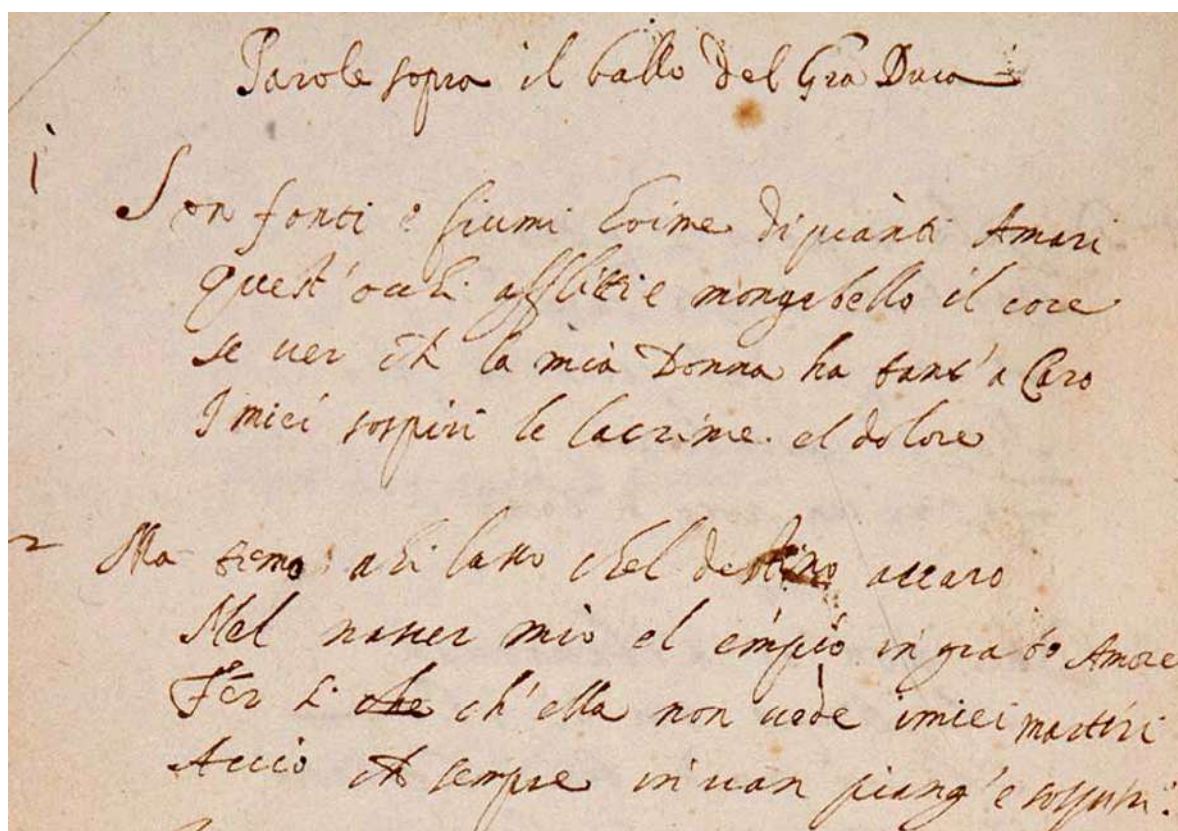 Parole sopra il ballo del Gra Duca
1
Son fonti e fiumi hoime di pianti Amari
Quest'occhi afflitti e mongibello il core
se ver ch la mia Donna ha tant'a Caro
I miei sospiri le lacrime el dolore
2
Ma temo ahi lasso chel destino avaro
Nel nascer mio el empio ingrato Amore
Fer si che ch'ella non vede i miei martiri
Acciò ch sempre in van piang'e sospiri.